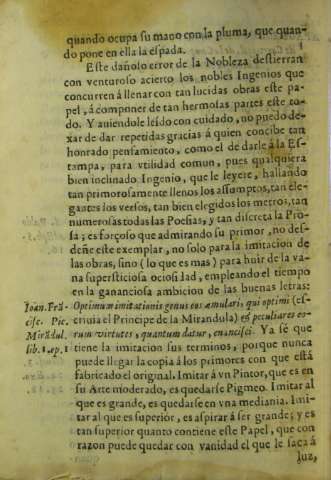 quando ocupa su mano con la pluma, que quan-
do pone en ella la espada.
Este dañoso error de la Nobleza destierran
con venturoso acierto los nobles Ingenios que
concurren á llenar con tan lucidas obras este pa-
pel, á componer de tan hermosas partes este to-
do. Y auiendole leìdo con cuidado, no puedo de-
xar de dar repetidas gracias á quien concibe tan
honrado pensamiento, como el de darle á la Es-
tampa, para vtilidad comun, pues qualquiera
bien inclinado Ingenio, que le leyere, hallando
tan primorosamente llenos los assumptos, tan ele-
gantes los versos, tan bien elegidos los metros, tan
numerosas todas las Poesias, y tan discreta la Pro-
sa; es forçoso que admirando su primor, no des-
deñe este exemplar, no solo para la imitacion de
las obras, sino (lo que es mas) para huir de la va-
na supersticiosa ociosidad, empleando el tiempo
en la gananciosa ambicion de las buenas letras:
Ioan. Frã- Optimum imitationis genus eos æmulari, qui optimi (es-
cisc. Pic. criuia el Principe de la Mirandula) ex peculiares eo-
Mirãdul. rum virtutes, quantum datur, enancisci. Ya sé que
lib. 1. ep. 1 tiene la imitacion sus terminos, porque nunca
puede llegar la copia á los primores con que está
fabricado el original. Imitar á vn Pintor, que es en
su Arte moderado, es quedarse Pigmeo. Imitar al
que es grande, es quedarse en vna mediania. Imi-
tar al que es superior, es aspirar á ser grande; y es
tan superior quanto contiene este Papel, que con
razon puede quedar con vanidad el que le saca á
luz,